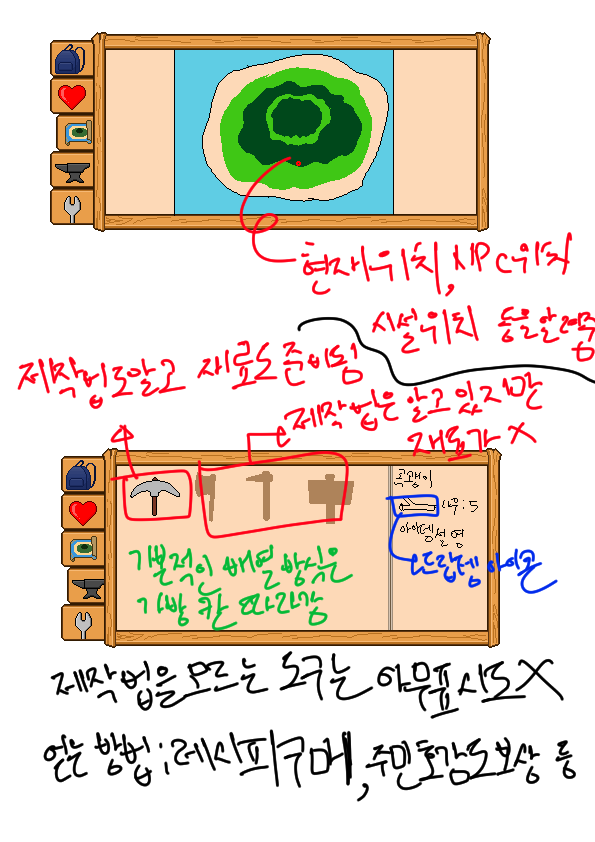 현재위치, NPC위치
시설위치 등을알려줌
제작법도알고 재료도 준비됨
제작법은 알고 있지만
재료가 X
곡괭이
나무 : 5
아이템 설명
드랍템 아이콘
기본적인 배열 방식은
가방 칸 따라감
제작법을모르는 도구는 아무표시도X
얻는 방법 ; 레시피구매, 주민호감도보상 등